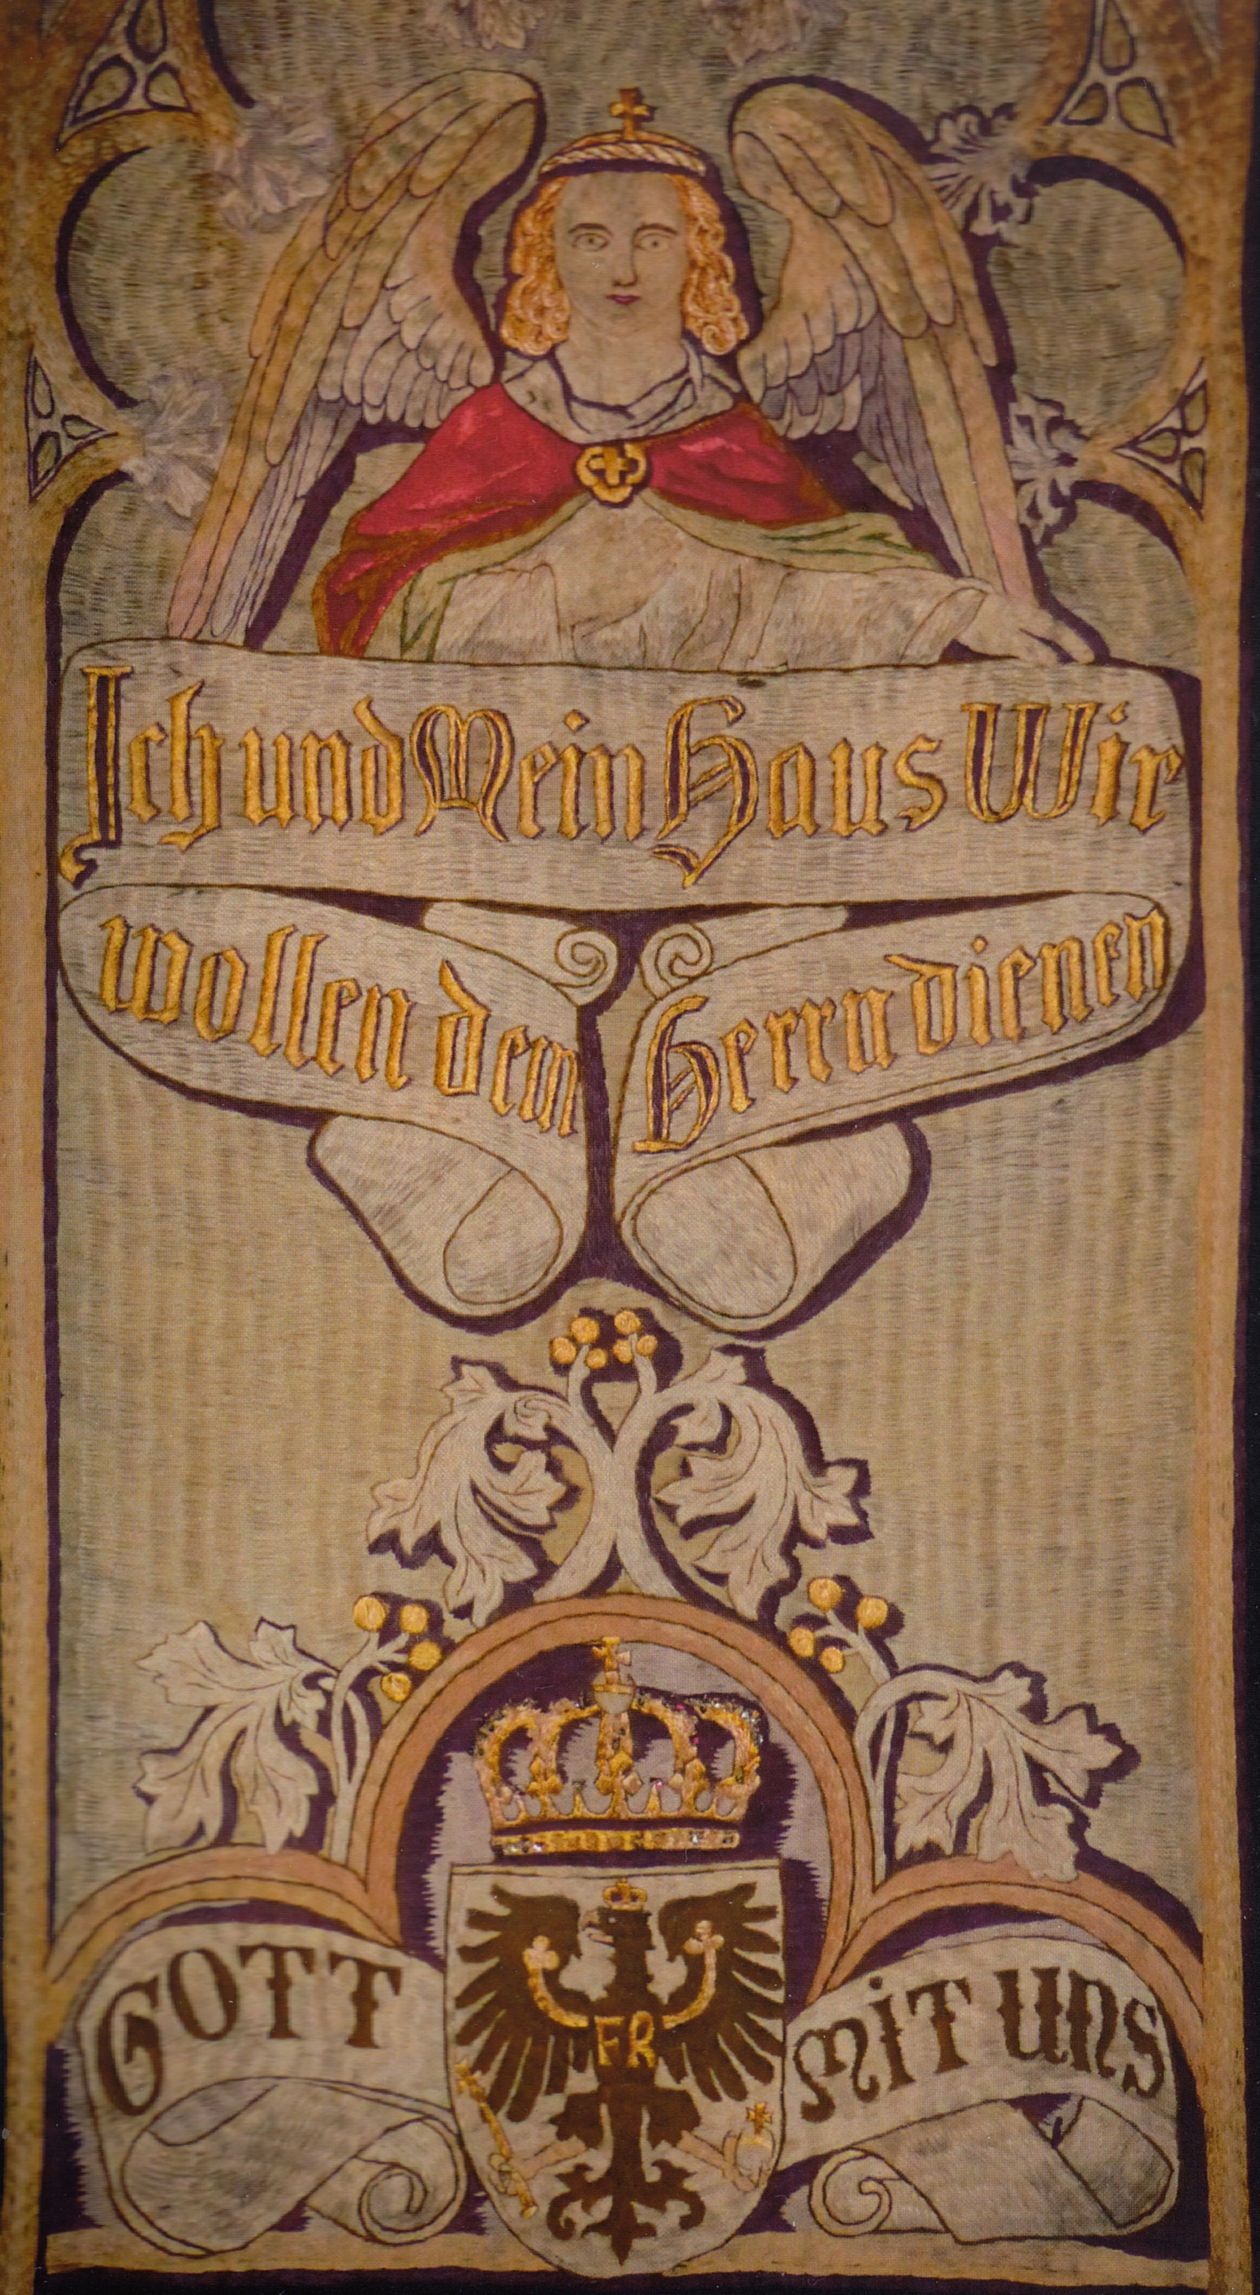 Ich und Mein Haus Wir
wollen dem Herrn dienen
FR
GOTT MIT UNS